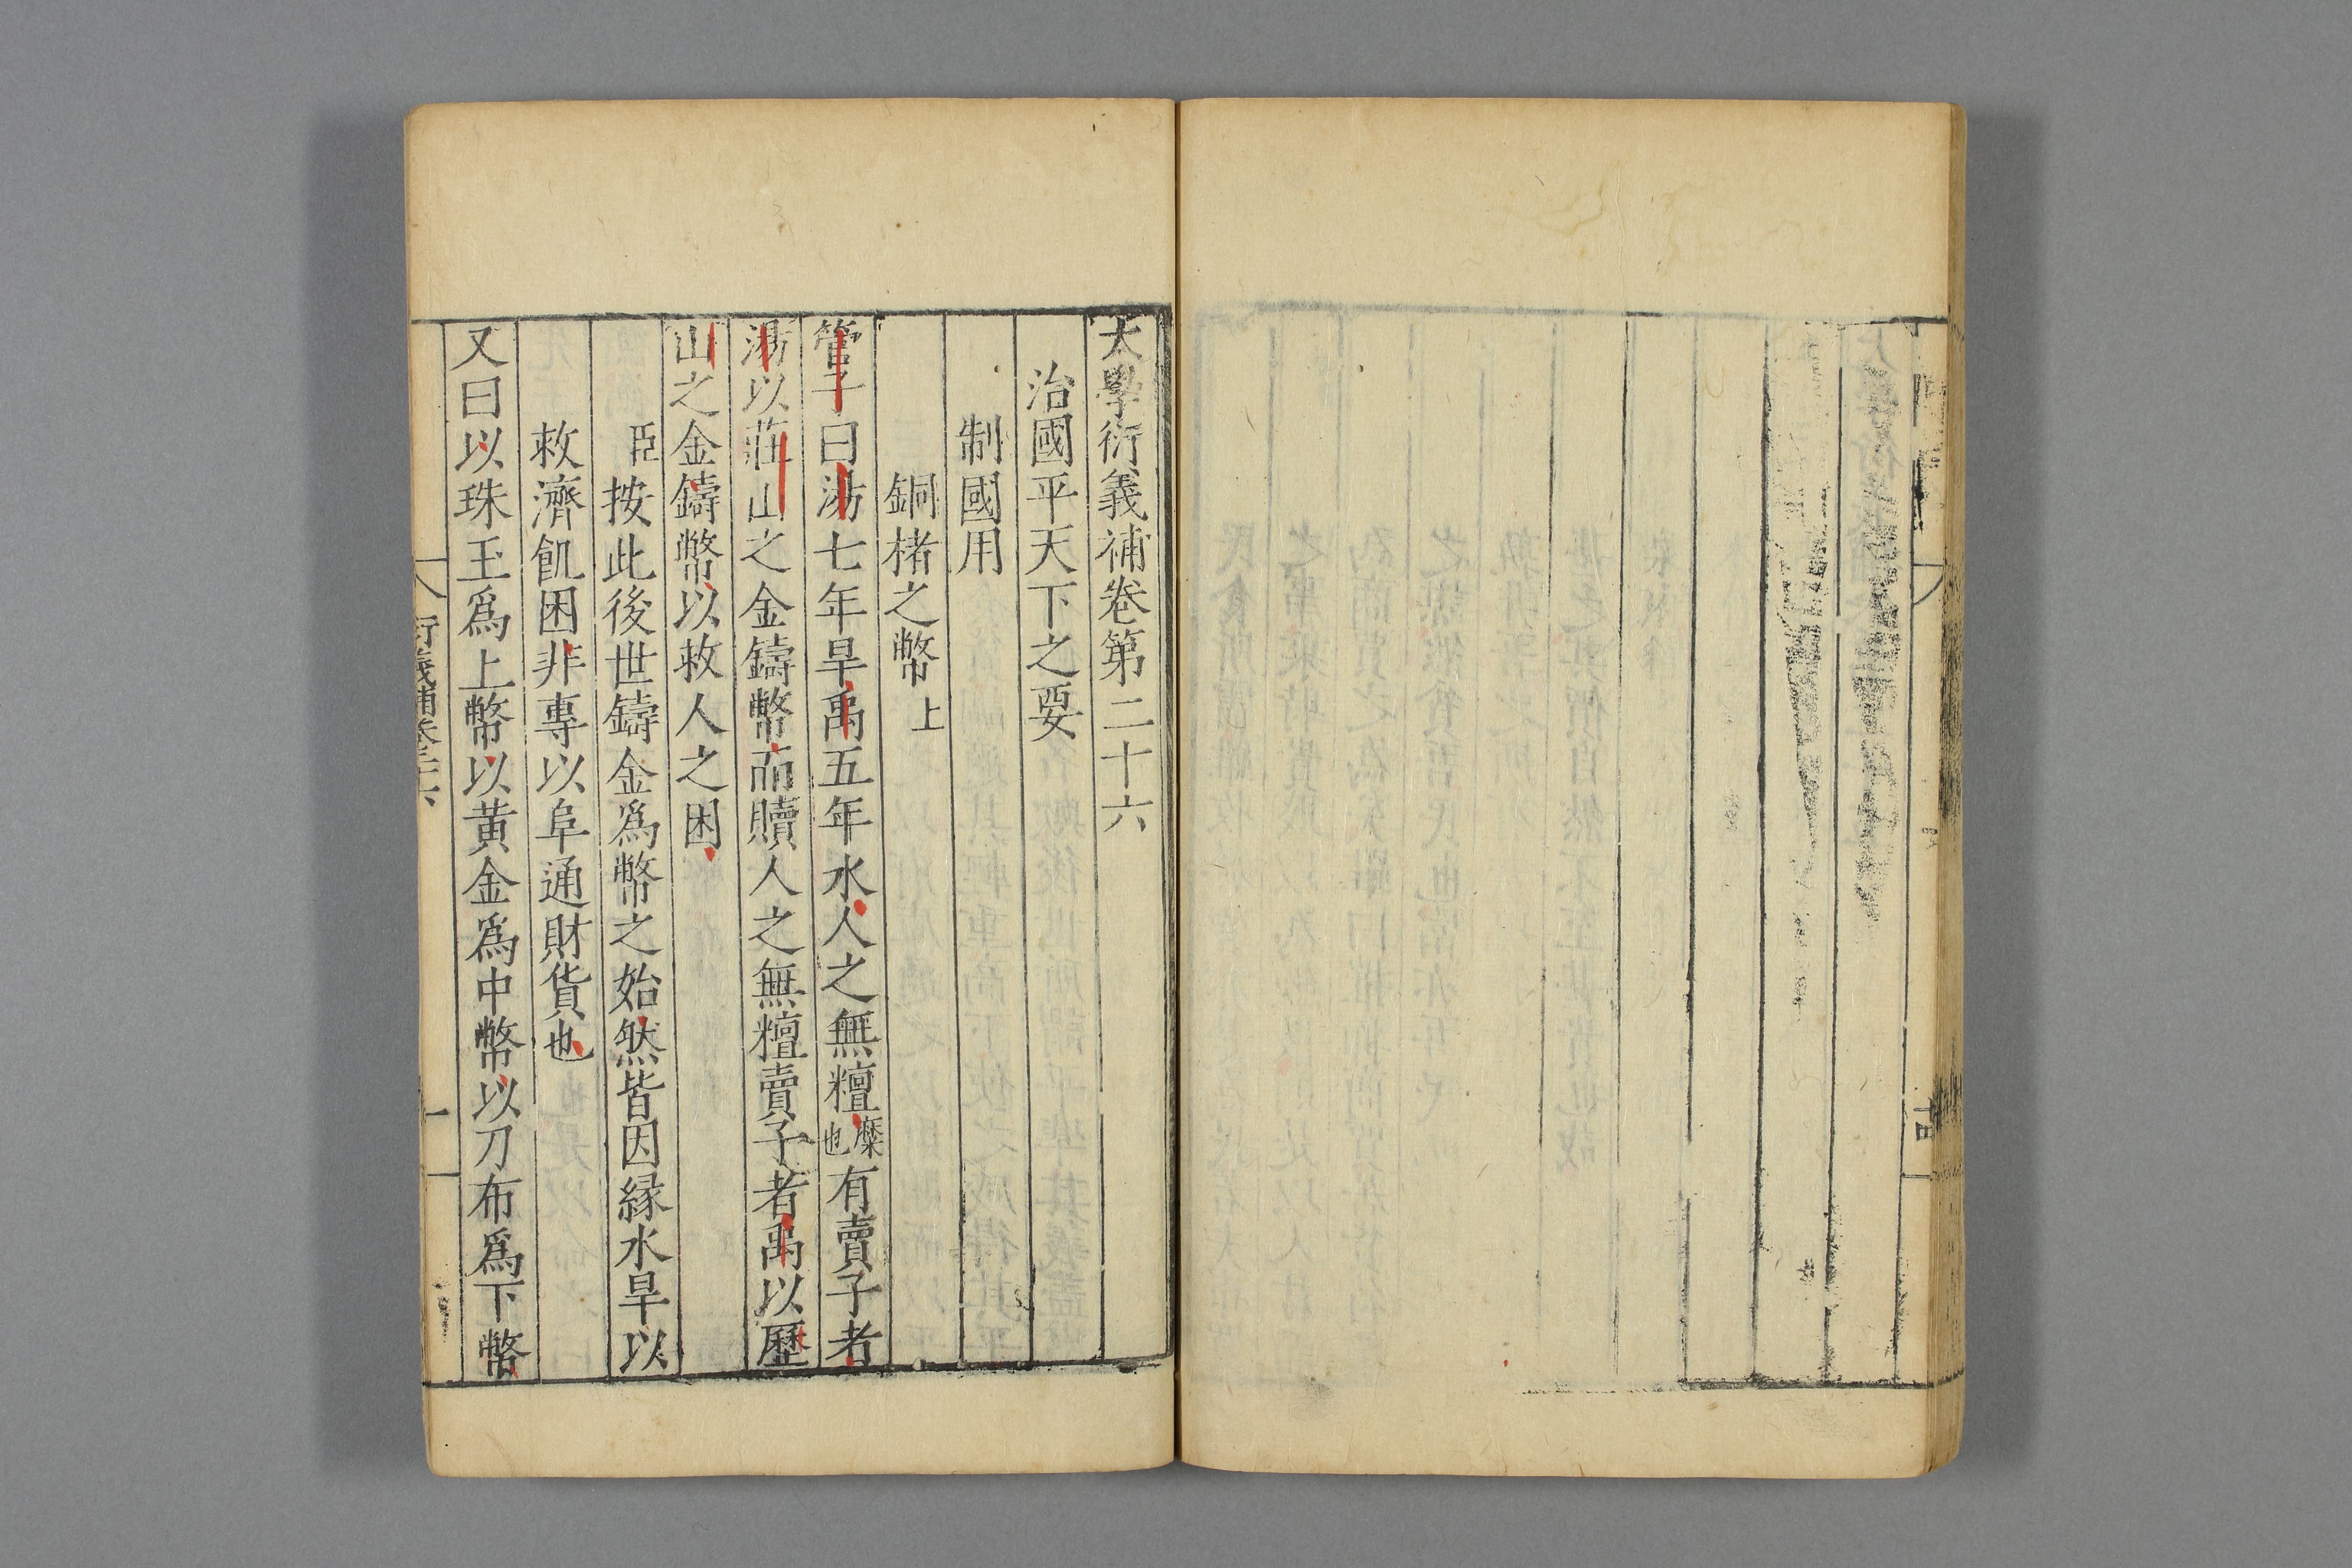 大學衍義補卷第二十六
治國平天下之要
制國用
銅楮之幣上
管子曰湯七年旱禹五年水人之無䊤糜也有賣子者
湯以莊山之金鑄幣而贖人之無䊤賣子者禹以歷
山之金鑄幣以救人之困
臣按此後世鑄金爲幣之始然皆因縁水旱以
救濟飢困非專以阜通財貨也
又曰以珠玉爲上幣以黄金爲中幣以刀布爲下幣
衍義補卷二十六
一